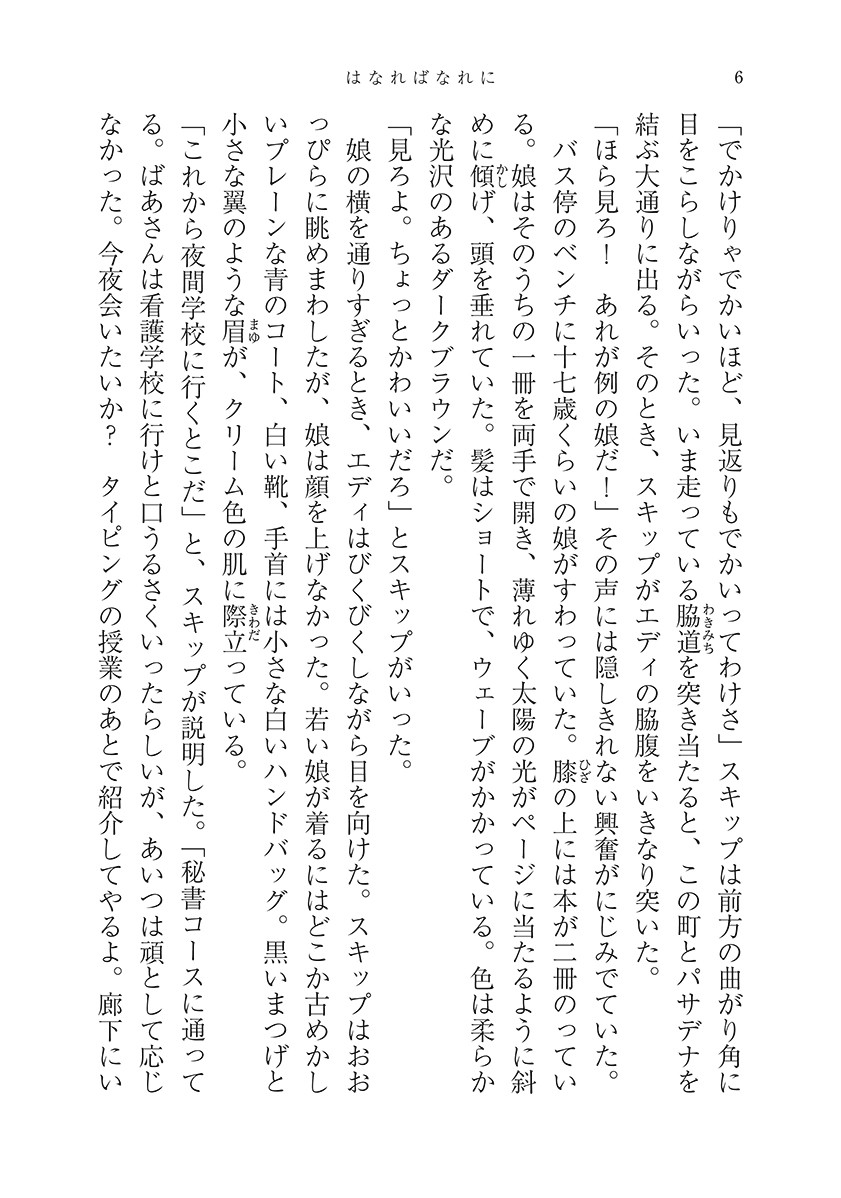 はなればなれに
6
「でかけりゃでかいほど、見返りもでかいってわけさ」スキップは前方の曲がり角に
目をこらしながらいった。いま走っている脇道を突き当たると、この町とパサデナを
わきみち
結ぶ大通りに出る。そのとき、スキップがエディの脇腹をいきなり突いた。
「ほら見ろ！　あれが例の娘だ！」その声には隠しきれない興奮がにじみでていた。
バス停のベンチに十七歳くらいの娘がすわっていた。膝の上には本が二冊のってい
ひざ
る。娘はそのうちの一冊を両手で開き、薄れゆく太陽の光がページに当たるように斜
めに傾げ、頭を垂れていた。髪はショートで、ウェーブがかかっている。色は柔らか
かし
な光沢のあるダークブラウンだ。
「見ろよ。ちょっとかわいいだろ」とスキップがいった。
娘の横を通りすぎるとき、エディはびくびくしながら目を向けた。スキップはおお
っぴらに眺めまわしたが、娘は顔を上げなかった。若い娘が着るにはどこか古めかし
いプレーンな青のコート、白い靴、手首には小さな白いハンドバッグ。黒いまつげと
小さな翼のような眉が、クリーム色の肌に際立っている。
まゆ
きわだ
「これから夜間学校に行くとこだ」と、スキップが説明した。「秘書コースに通って
る。ばあさんは看護学校に行けと口うるさくいったらしいが、あいつは頑として応じ
なかった。今夜会いたいか？　タイピングの授業のあとで紹介してやるよ。廊下にい